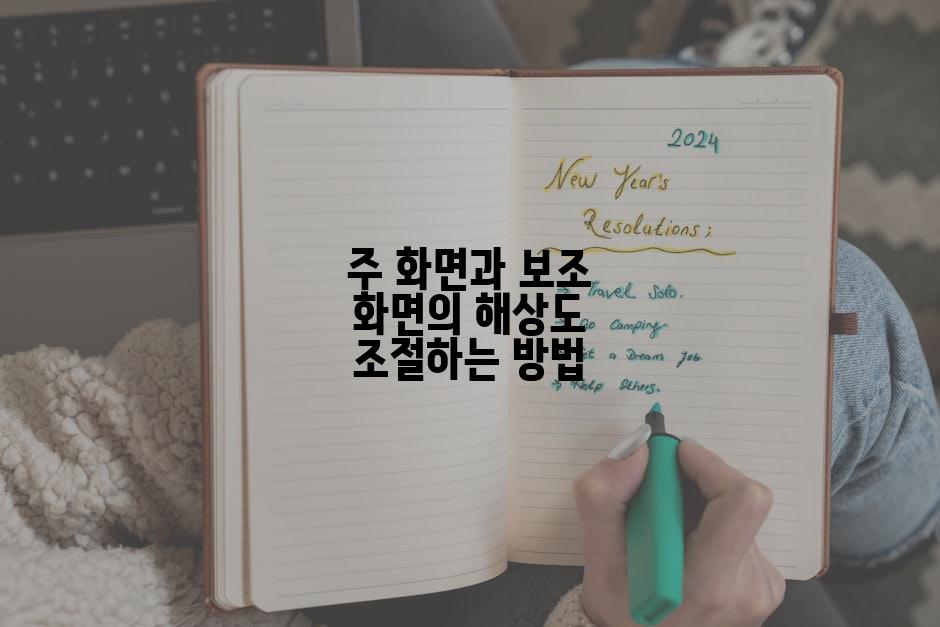 2024
New Year's
Resolutions;
주 화면과 보조
화면의 해상도
조절하는 방법
→ Travel Solo.
Go Camping.
a Dream Job
→ Help Others.